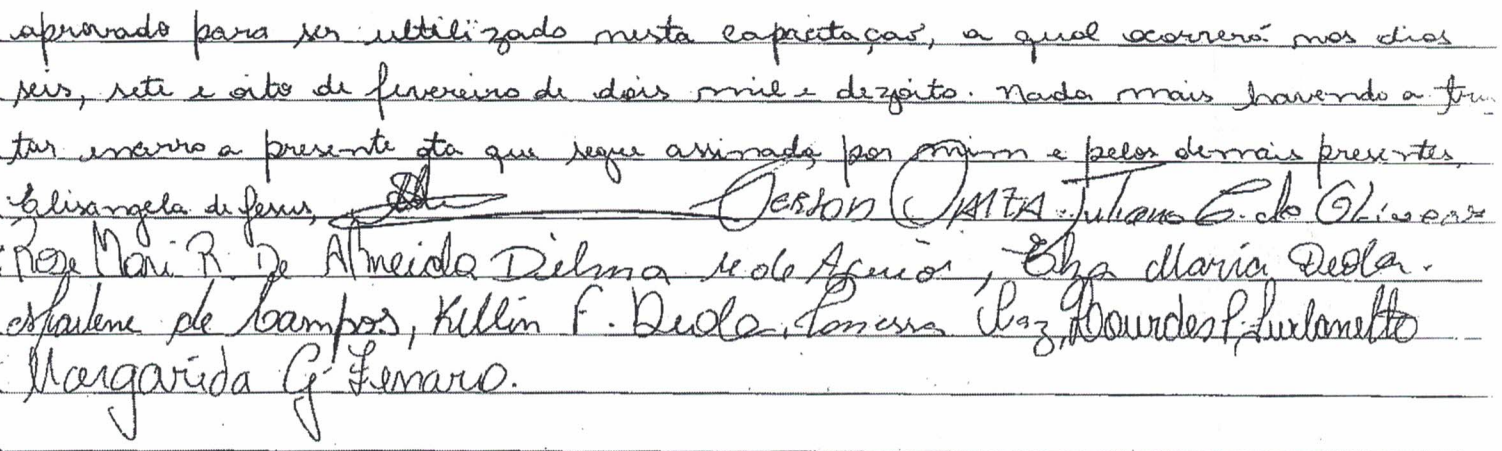 aprovado para ser ultilizado nesta capacitação, a qual ocorrerá nos dias
seis, sete e oito de fevereiro de dois mil e dezoito. Nada mais havendo a tra
tar encerro a presente ata que segue assinada por mim e pelos demais presentes.
Elisangela de Jesus, Gerson Juliano C. de Oliveira
Rose Mari R. De Almeida Dilma de , Elza Maria Deola.
Marlene de Campos, Kellin F. Deola, Vanessa Vaz, Lourdes P. Furlanetto
Margarida G Zenaro.